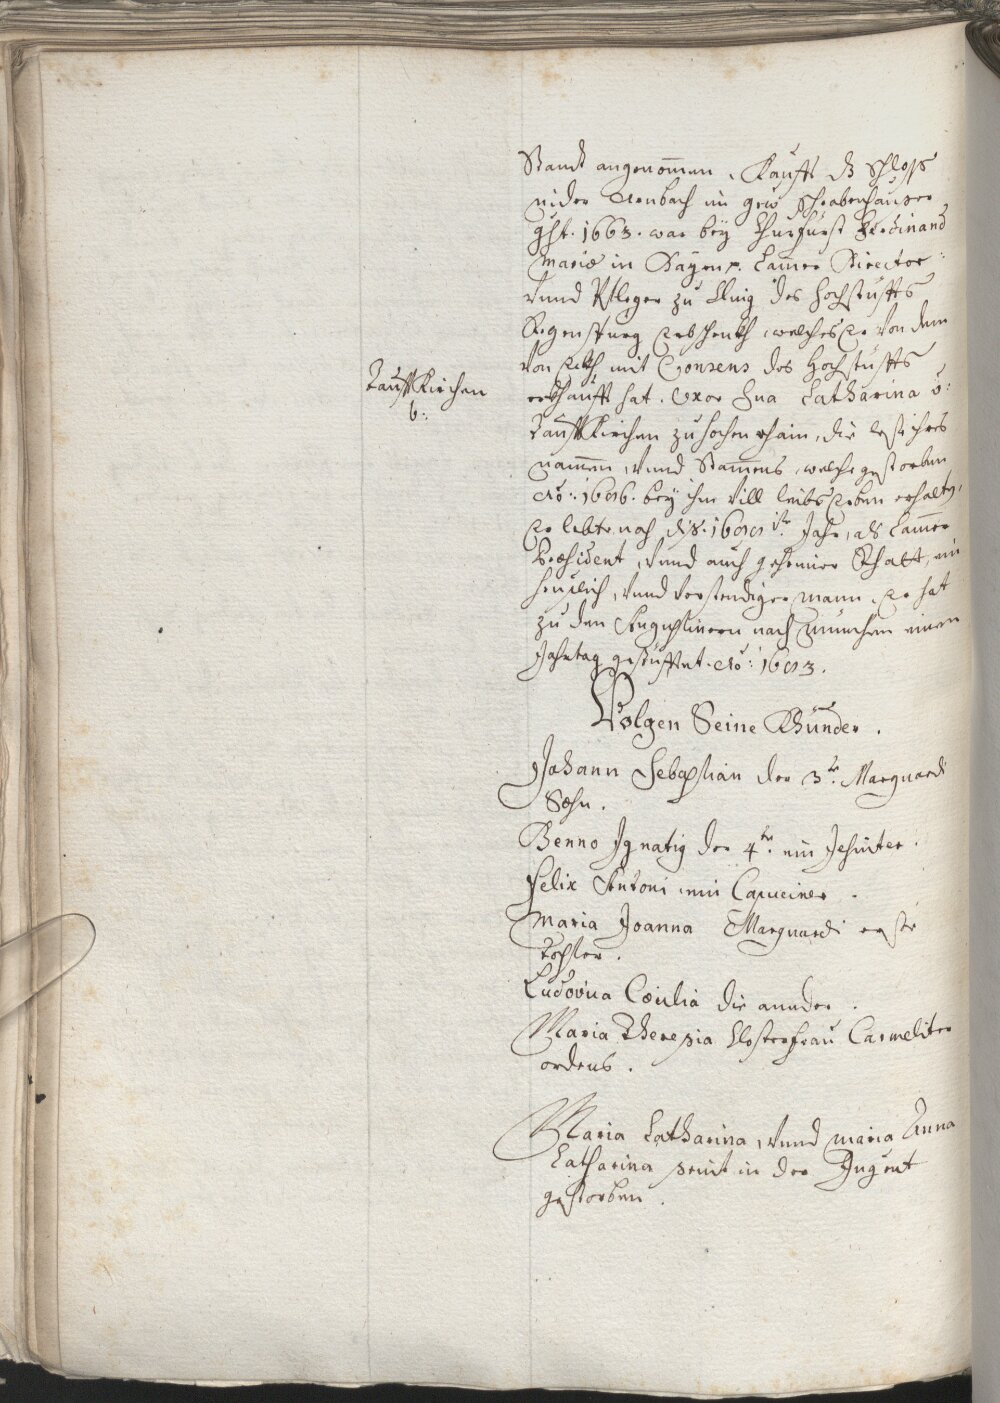 Standt angenommen. Kaufft dz Schloß
nider Arnbach im gew Schrobenhauser
ght. 1663. war bey Churfürst Ferdinand
Mariæ in Bayrn p. Camer Director
vnnd Pfleger zu des Hochstüffts
Regenspurg Erbschenkh, welches Er von dem
von mit Consens des Hochstüffts
erkhaufft hat. Vxor Sua Catharina v:
Tauffkirchen
v:
Tauffkirchen zu hochen rhain, die lest ihres
nammen, vnnd Stammens, welche gestorben
Aō: 1686. bey ihr vill leibs Erben erhalten,
Er lebte noch diß. 1691 ist Jahr, als Camer
Præsident, vnnd auch gehaimer Rhatt, ein
herrlich, vnnd verstendiger mann. Er hat
zu den Augustinern nach München einen
Jahrtag gestüfftet. Aō: 1683.
Volgen Seine Khünder.
Johann Sebastian der 3te. Marquardi
Sohn.
Benno Ignatig der 4te. ein Jesuiter.
Felix Antoni ein Capuciner.
Maria Joanna Marquardi erste
Tochter.
Ludovica Cæcilia die annder.
Maria Theresia Closterfrau Carmeliter
ordens.
Maria Catharina, vnnd maria Anna
Catharina seint in der Jugent
gestorben.